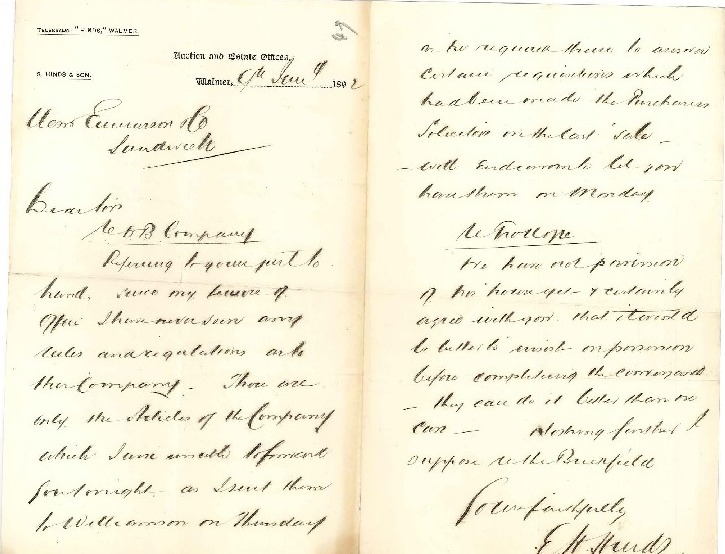 TELEGRAMS: "HINDS," WALMER.
Auction and Estate Offices,
S. HINDS & SON.
Walmer, 9th Jan 1892
Messrs Emmerson & Co
Sandwich
Dear Sirs
re & B Company
Referring to your just to
hand, since my tenure of
Office I have never seen any
rules and regulations as to
the Company. There are
only the Articles of the Company
which I am unable to forward
you tonight as I sent them
to Williamson on Thursday
as he required them to answer
certain requisitions which
had been made the Purchasers
Solicitor on the last sale -
- will endeavour to let you
have them on Monday
re Trollope
We have not possession
of his house yet - & certainly
agree with you that it would
be better to insist on possession
before completing the conveyance
- they can do it better than we
can - Nothing further I
suppose re the Brickfield
Yours faithfully
E H Hinds